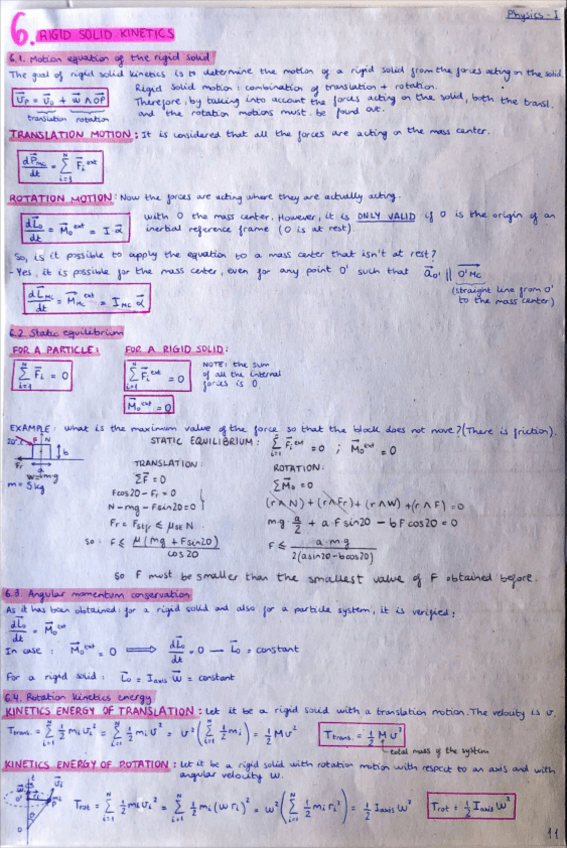 Physics - I
6. RIGID SOLID KINETICS
6.1. Motion equation of the rigid solid
The goal of rigid solid kinetics is to determine the motion of a rigid solid from the forces acting on the solid.
v⃗P = v⃗o + w⃗ ∧ OP⃗
translation rotation
Rigid solid motion: combination of translation + rotation.
Therefore, by taking into account the forces acting on the solid, both the transl.
and the rotation motions must be found out.
TRANSLATION MOTION: It is considered that all the forces are acting on the mass center.
dP⃗MC/dt = Σ(i=1..N) F⃗i^ext
ROTATION MOTION: Now the forces are acting where they are actually acting.
dL⃗o/dt = M⃗o^ext = I·α⃗
with O the mass center. However, it is ONLY VALID if O is the origin of an
inertial reference frame (O is at rest).
So, is it possible to apply the equation to a mass center that isn't at rest?
- Yes, it is possible for the mass center, even for any point O' such that a⃗o' || O'MC⃗
(straight line from O'
to the mass center)
dL⃗MC/dt = M⃗MC^ext = IMC α⃗
6.2. Static equilibrium
FOR A PARTICLE: FOR A RIGID SOLID:
Σ(i=1..N) F⃗i = 0
Σ(i=1..N) F⃗i^ext = 0
NOTE: the sum
of all the internal
forces is 0
M⃗o^ext = 0
EXAMPLE: What is the maximum value of the force so that the block does not move? (There is friction).
20° F N
b
Fr
a
W=m·g
m = 5 kg
STATIC EQUILIBRIUM: Σ(i=1..N) F⃗i^ext = 0 ; M⃗o^ext = 0
TRANSLATION:
ΣF⃗ = 0
Fcos20 - Fr = 0
N - mg - Fsin20 = 0
Fr = Fsfr ≤ μse N
so: F ≤ μ(mg + Fsin20)/cos20
ROTATION:
ΣM⃗o = 0
(r∧N) + (r∧Fr) + (r∧W) + (r∧F) = 0
m·g·a/2 + a·F sin20 - bF cos20 = 0
F ≤ a·m·g/2(asin20-bcos20)
So F must be smaller than the smallest value of F obtained before.
6.3. Angular momentum conservation
As it has been obtained for a rigid solid and also for a particle system, it is verified:
dL⃗o/dt = M⃗o^ext
In case: M⃗o^ext = 0 ⟹ dL⃗o/dt = 0 — L⃗o = constant
For a rigid solid: L⃗o = Iaxis w⃗ = constant
6.4. Rotation kinetics energy
KINETICS ENERGY OF TRANSLATION: Let it be a rigid solid with a translation motion. The velocity is v.
Ttrans. = Σ(i=1..N) 1/2 mi vi² = Σ(i=1..N) 1/2 mi v² = v² (Σ(i=1..N) 1/2 mi) = 1/2 Mv²
Ttrans. = 1/2 M v²
total mass of the system
KINETICS ENERGY OF ROTATION: Let it be a rigid solid with rotation motion with respect to an axis and with
angular velocity w.
Trot = Σ(i=1..N) 1/2 mi vi² = Σ(i=1..N) 1/2 mi (w ri)² = w² (Σ(i=1..N) 1/2 mi ri²) = 1/2 Iaxis w²
Trot = 1/2 Iaxis w²
11